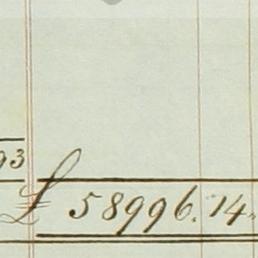 93
£ 58996.14.